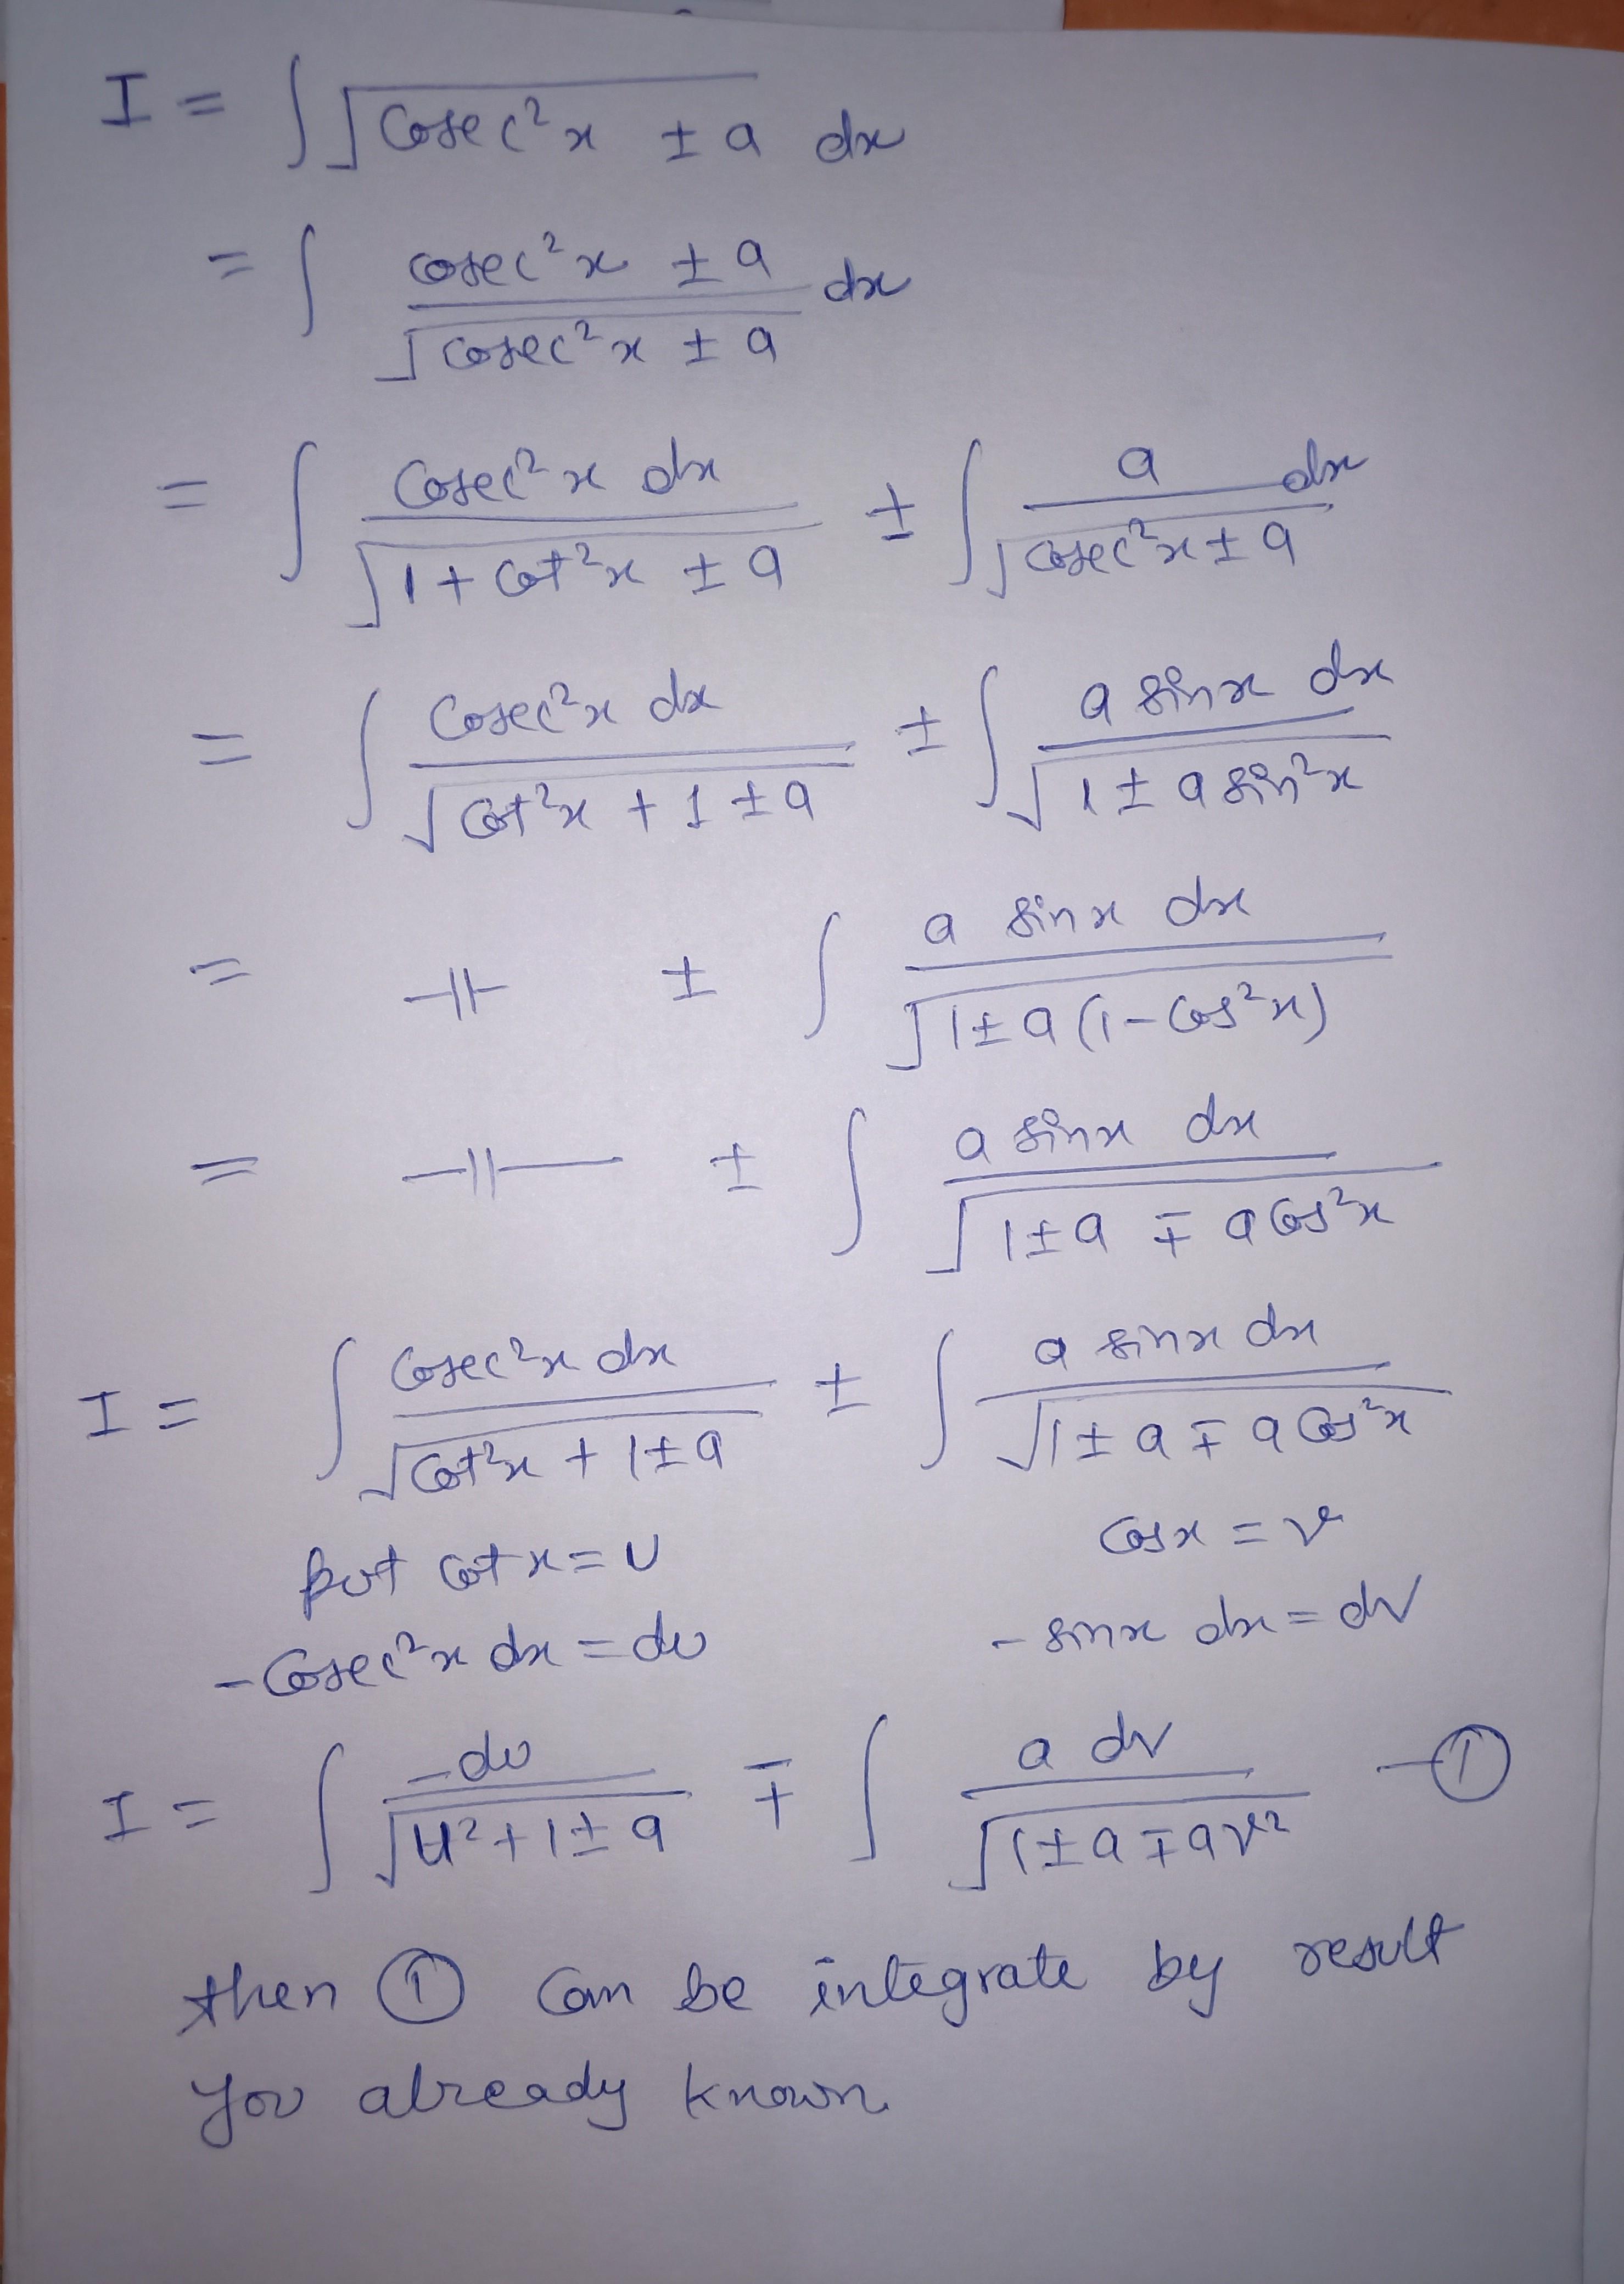 I = ∫ √(Cosec²x ± a) dx
= ∫ (cosec²x ± a) / √(cosec²x ± a) dx
= ∫ Cosec²x dx / √(1 + Cot²x ± a) ± ∫ a dx / √(cosec²x ± a)
= ∫ Cosec²x dx / √(Cot²x + 1 ± a) ± ∫ a sinx dx / √(1 ± a sin²x)
= –||– ± ∫ a sinx dx / √(1 ± a (1 – Cos²x))
= –||– ± ∫ a sinx dx / √(1 ± a ∓ a Cos²x)
I = ∫ Cosec²x dx / √(Cot²x + 1 ± a) ± ∫ a sinx dx / √(1 ± a ∓ a Cos²x)
put Cot x = u Cosx = v
– Cosec²x dx = du – sinx dx = dv
I = ∫ –du / √(u² + 1 ± a) ∓ ∫ a dv / √(1 ± a ∓ av²) –①
then ① Can be integrate by result
you already known